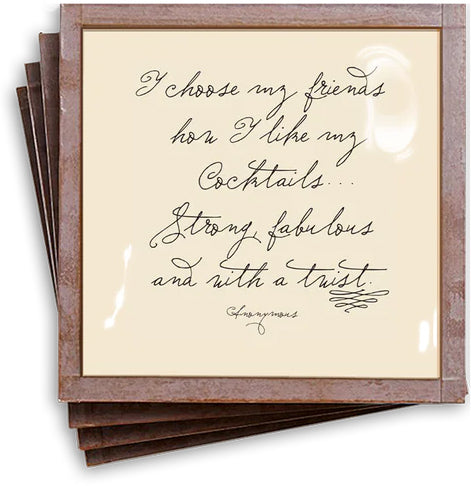 I choose my friends
how I like my
Cocktails...
Strong, fabulous
and with a twist.
Anonymous